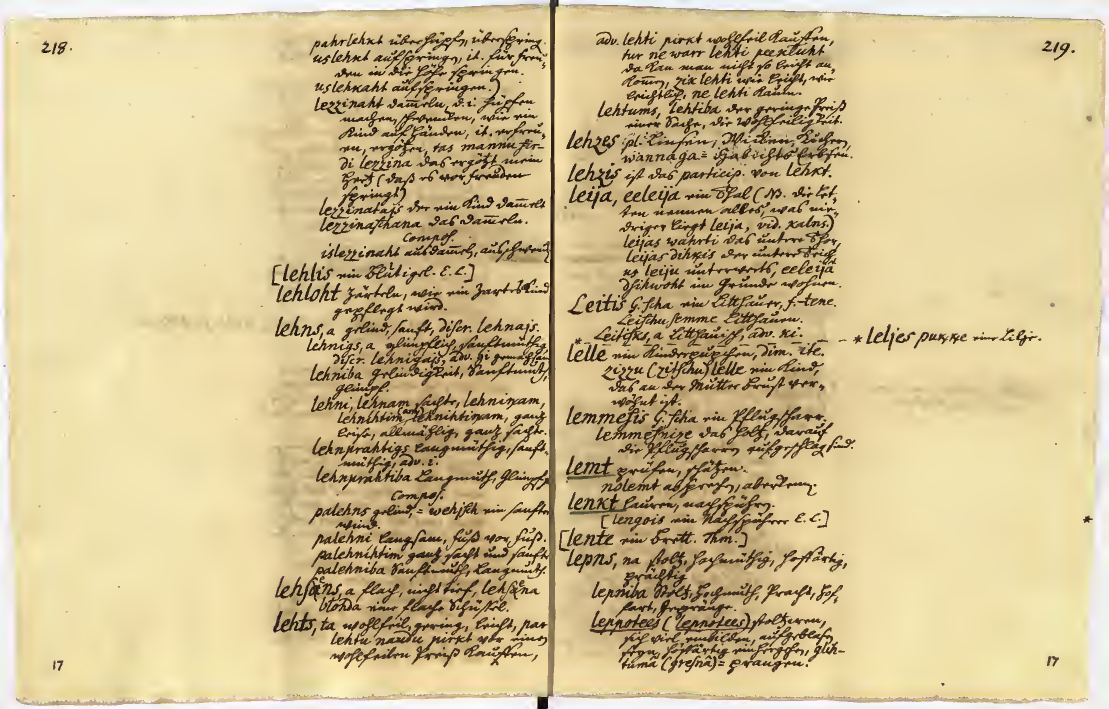 218.
pahrlehkt überhüpfen, überspring.
uslehkt aufspringen, it. für freu-
den in die Höhe springen.
uslehkaht aufspringen.)
lezzinaht dam̅eln, d.i. hüpfen
machen, schwencken, wie ein
Kind auf Händen, it. erfreu-
en, ergötzen, tas mannu sir-
di lezzina das ergötzt mein
Hertz (daß es vor freuden
springt)
lezzinatajs der ein Kind dam̅elt
lezzinaschana das dam̅eln.
Compos.
islezzinaht ausdam̅eln,
[lehlis ein Blutigel. E.L.]
lehloht zärteln, wie ein zartes Kind
gepflegt wird.
lehns, a gelind, sanft, discr. lehnajs.
lehnigs, a glimpflich, sanftmüthig
discr. lehnigais, adv. gi
lehniba Gelindigkeit, Sanftmuth,
glimpf.
lehni, lehnam sachte, lehninam,
lehnihtim, lehnihtinam, gantz
leise, allmählig, gantz sachte.
lehnprahtigs langmüthig, sanft-
müthig, adv. i.
lehnprahtiba Langmuth, Glimpf.
Compos.
palehns gelind, = wehjsch ein sanfter
wind.
palehni langsam, fuß vor fuß.
palehnihtim gantz sacht und sanft
palehniba Sanftmuth, Langmuth.
a flach, nicht tief,
blohda eine flache Schüssel.
lehts, ta wohlfeil, gering, leicht, par
lehtu naudu pirkt vor einen
wohlfeilen Preiß Kauffen,
17
219.
adv. lehti pirkt wohlfeil Kauffen,
tur ne warr lehti peekluht
da kan man nicht so leicht an-
kom̅en, zik lehti wie leicht, wie
leichtlich, ne lehti kaum.
lehtums, lehtiba der geringe Preiß
einer Sache, die Wohlfeiligkeit.
lehzes pl. Linsen, Wicken,
wannaga = Habichts
lehzis ist das particip. von lehkt.
leija, eeleija ein Thal (NB. die Let-
ten nennen alles, was nie-
driger liegt leija, vid. kalns.)
leijas wahrti das untere Thor,
leijas dihkis der untere Teich,
us leiju unterwerts, eeleijâ
dsihwoht im Grunde wohnen.
Leitis G. scha ein Litthauer, f. tene.
Leischu semme Litthauen.
Leitisks, a Litthauisch, adv. ki.
* leljes pukke eine Lilje.
lelle ein Kinderpüpchen, dim. ite.
zizzu (zitschu) lelle ein Kind,
das an der Mutter Brust ver-
wöhnt ist.
lemmesis G. scha ein Pflugschaar.
lemmesnize das Holtz, darauf
die Pflugscharen aufgeschlag. sind.
lemt prüfen, schätzen.
nolemt
lenkt lauren, nachspühren.
[lengois ein Nachspührer E.L.]
[lente ein Brett. Thm.]
lepns, na stoltz, hochmüthig, hoffärtig,
prächtig
lepniba Stoltz, Hochmuth, Pracht, Hof-
fart, Gepränge.
lepnotees (lepnotees) stoltzieren,
sich viel einbilden, aufgeblasen
seyn, hoffärtig einhergehen, glih-
tuma (gresnâ) = prangen.
*
17